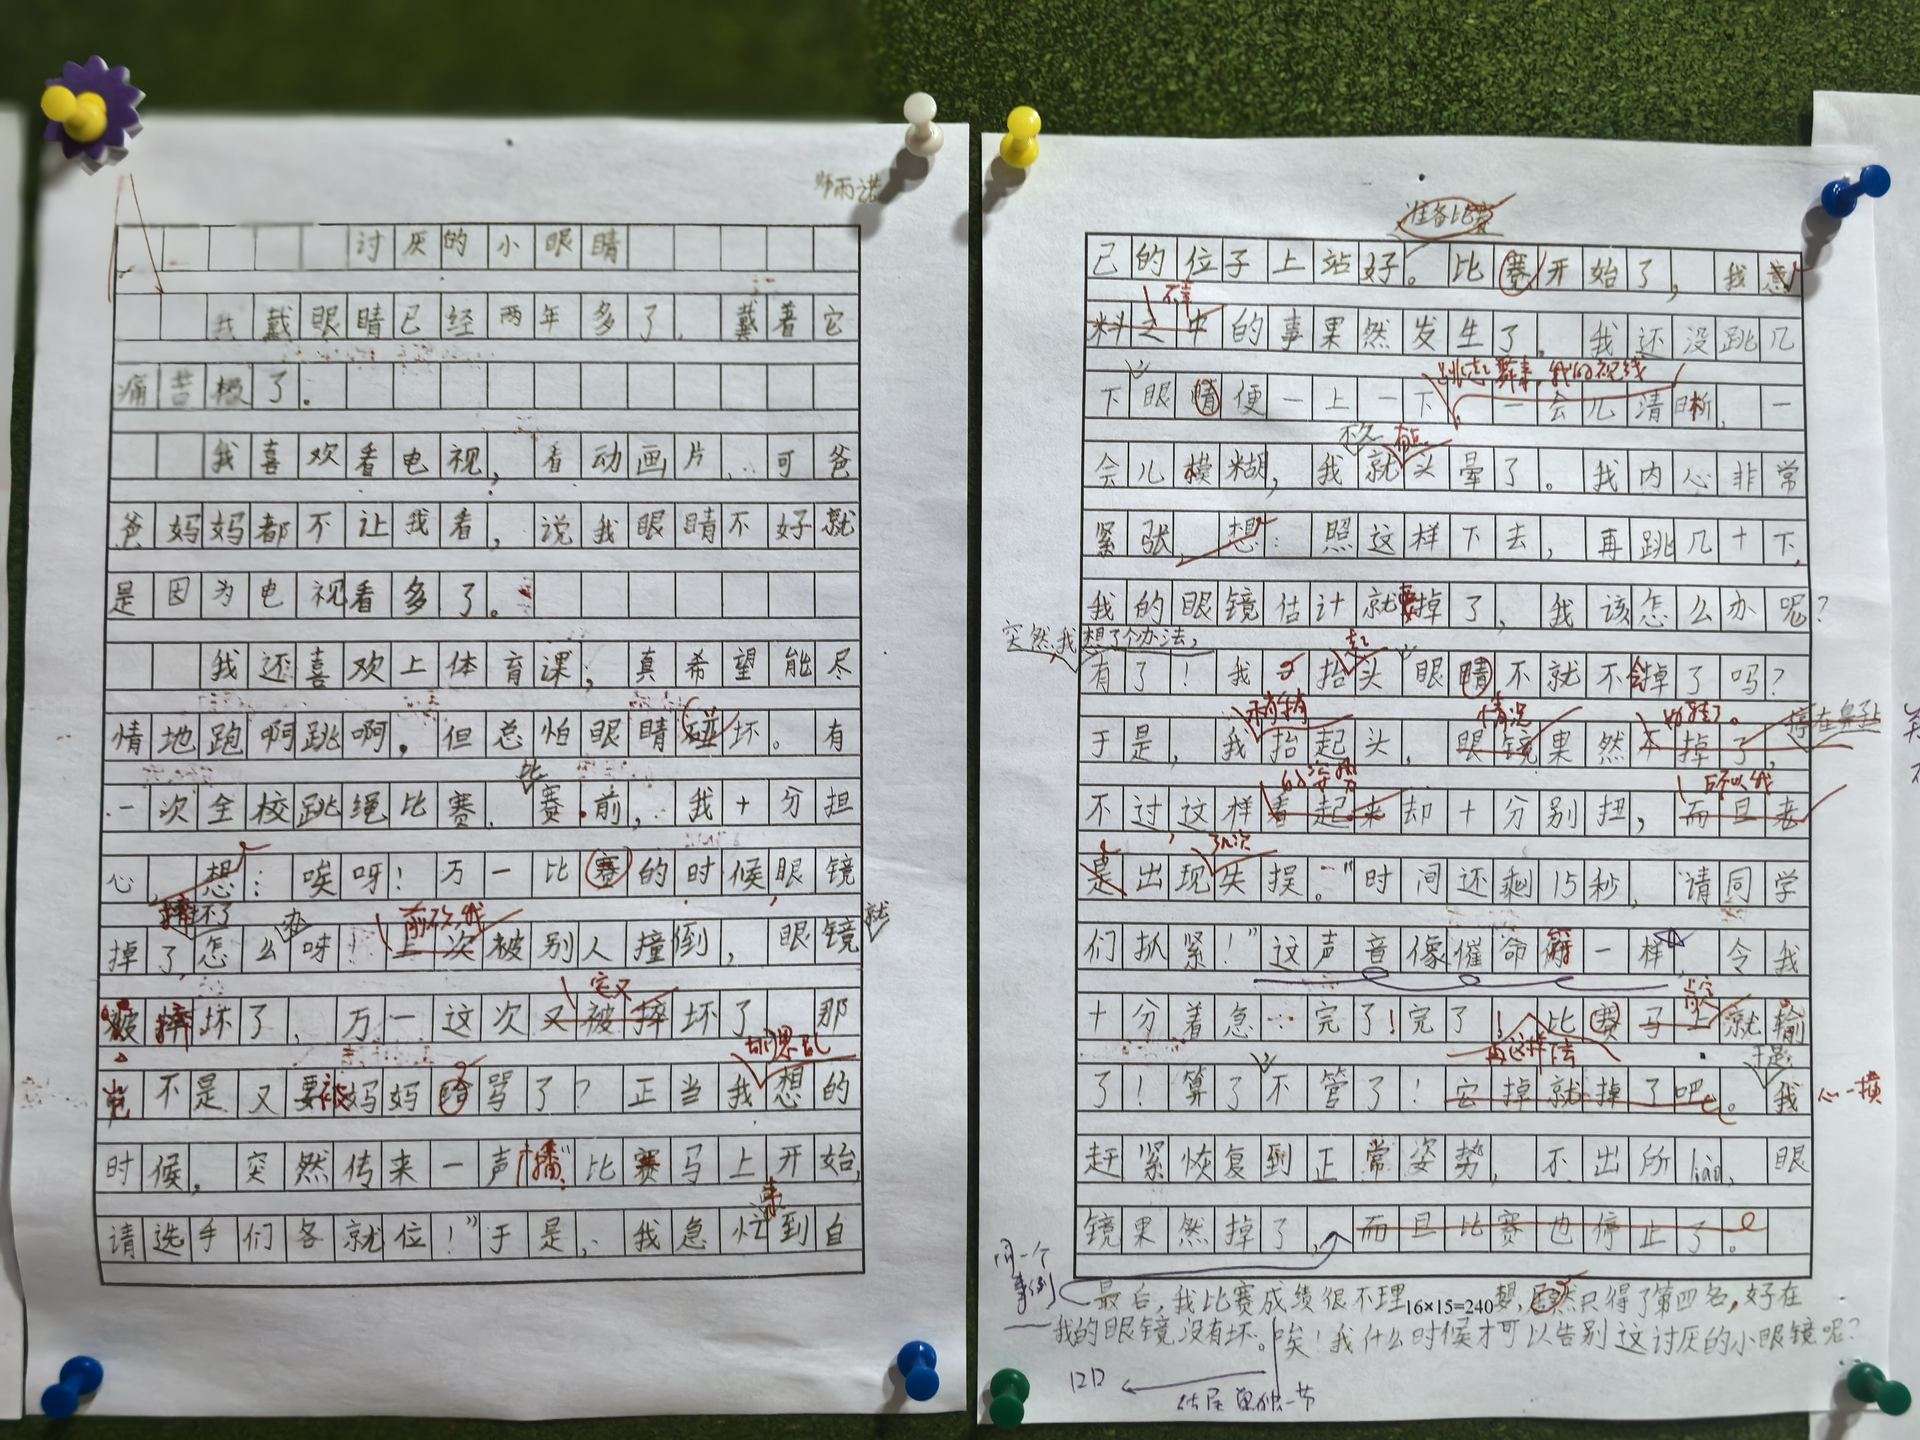 师雨诺
讨厌的小眼睛
我戴眼睛已经两年多了，戴着它
痛苦极了.
我喜欢看电视，看动画片，可爸
爸妈妈都不让我看，说我眼睛不好就
是因为电视看多了。
我还喜欢上体育课；真希望能尽
情地跑啊跳啊，但总怕眼睛碰坏。有
比
一次全校跳绳比赛、赛前，我十分担
心，想：唉呀！万一比赛的时候，眼镜
摔坏了 办 前不久，我 就
掉了，怎么呀！上次被别人撞倒，眼镜
它又
被摔坏了，万一这次又被摔坏了 那
胡思乱
岂不是又要被妈妈给骂了？正当我想的
时候，突然传来一声播“比赛马上开始,
来
请选手们各就位！”于是，我急忙到自
准备比赛
己的位子上站好。比赛开始了，我意
不幸
料之中的事果然发生了。我还没跳几
跳起舞来，我的视线
下眼睛便一上一下 一会儿清晰，一
不久 有点
会儿模糊，我就头晕了。我内心非常
紧张，想：照这样下去，再跳几十下，
我的眼镜估计就要掉了，我该怎么办呢？
突然，我想了个办法，
起
有了！我 抬头眼睛不就不会掉了吗？
稍稍 情况 好转了。 停在鼻子上
于是，我抬起头，眼镜果然不掉了，
的姿势 所以我
不过，这样看起来却十分别扭，而且老
了几次
是出现失误。“时间还剩15秒，请同学
们抓紧！”这声音像催命符一样 令我
十分着急…完了！完了！比赛马上就输
再这样下去
于是
了！算了不管了！它掉就掉了吧。我
心一横
赶紧恢复到正常姿势，不出所liào，眼
镜果然掉了，而且比赛也停止了。
同一个
事例
最后，我比赛成绩很不理想，居然只得了第四名，好在
16×15=240
我的眼镜没有坏。唉！我什么时候才可以告别这讨厌的小眼镜呢？
结尾单独一节